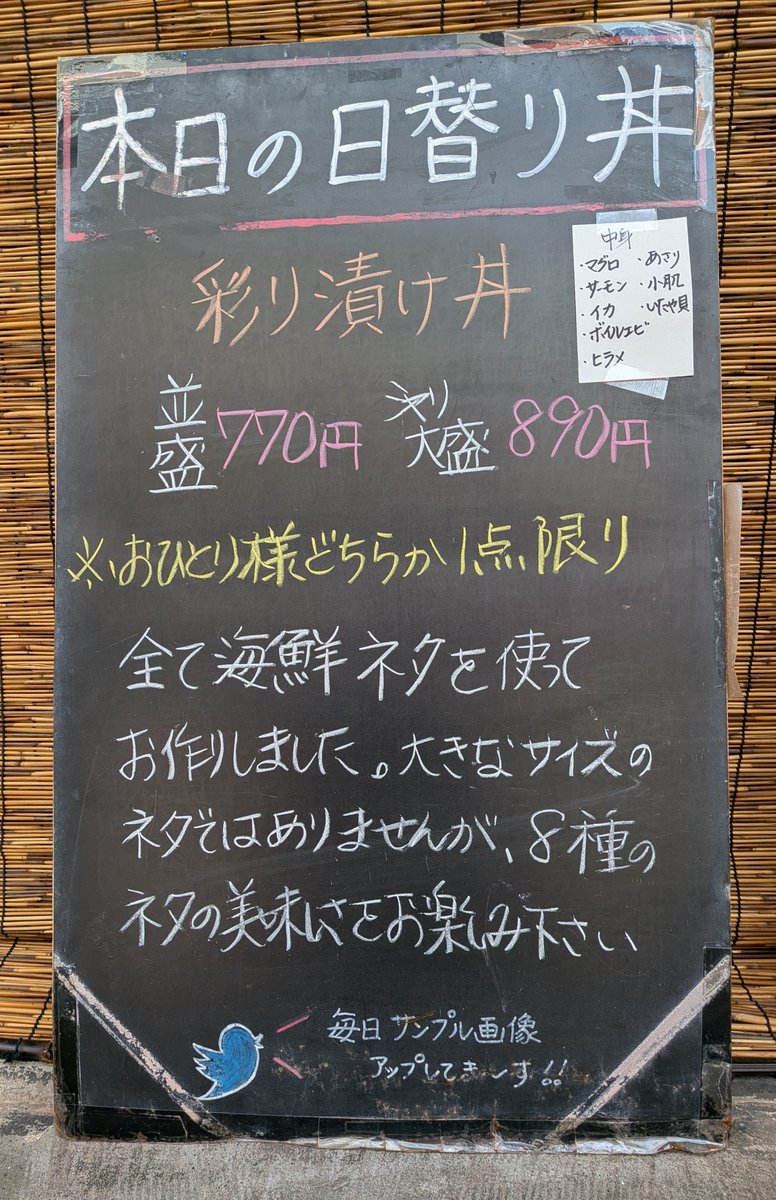 本日の日替り丼
彩り漬け丼
中身
・マグロ
・サーモン
・イカ
・ボイルエビ
・ヒラメ
・あさり
・小肌
・いたや貝
並盛770円 シャリ大盛890円
※おひとり様どちらか1点限り
全て海鮮ネタを使って
お作りしました。大きなサイズの
ネタではありませんが、8種の
ネタの美味しさをお楽しみ下さい
毎日サンプル画像
アップしてまーす!!